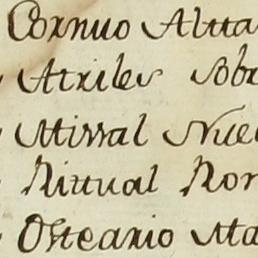 Cornuo Altta
Atriles Sobr
Missal Nue
Rittual Rom
Osteario Ma